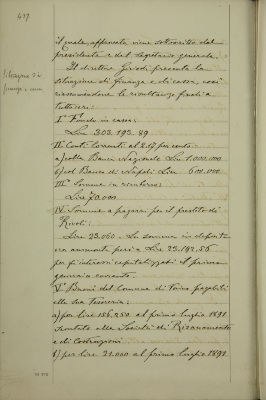 437
il quale, approvato, viene sottoscritto dal
presidente e dal segretario generale.
Il direttore Giródi presenta la
situazione di finanza e di cassa, così
riassumendone le risultanze finali a
tutt'ieri:
I° Fondo in cassa:
Lire 303.193.89
II Conti correnti al 2.17 per cento:
a) colla Banca Nazionale Lire 1.000.000
b) col Banco di Napoli Lire 600.000
III° Somme in rimborso:
Lire 70.000
IV Somme a pagare per il prestito di
Rivoli:
Lire 23.060. La somma in deposito
era aumentata però a Lire 23.192.56
per gl'interessi capitalizzati il primo
gennaio corrente.
V° Buoni del Comune di Torino pagabili
alla sua Tesoreria:
a) per lire 156.250 al primo luglio 1891
scontato alla Società di Risanamento
e di Costruzioni
b) per lire 21.000 al primo luglio 1891
Situazione di
finanza e cassa